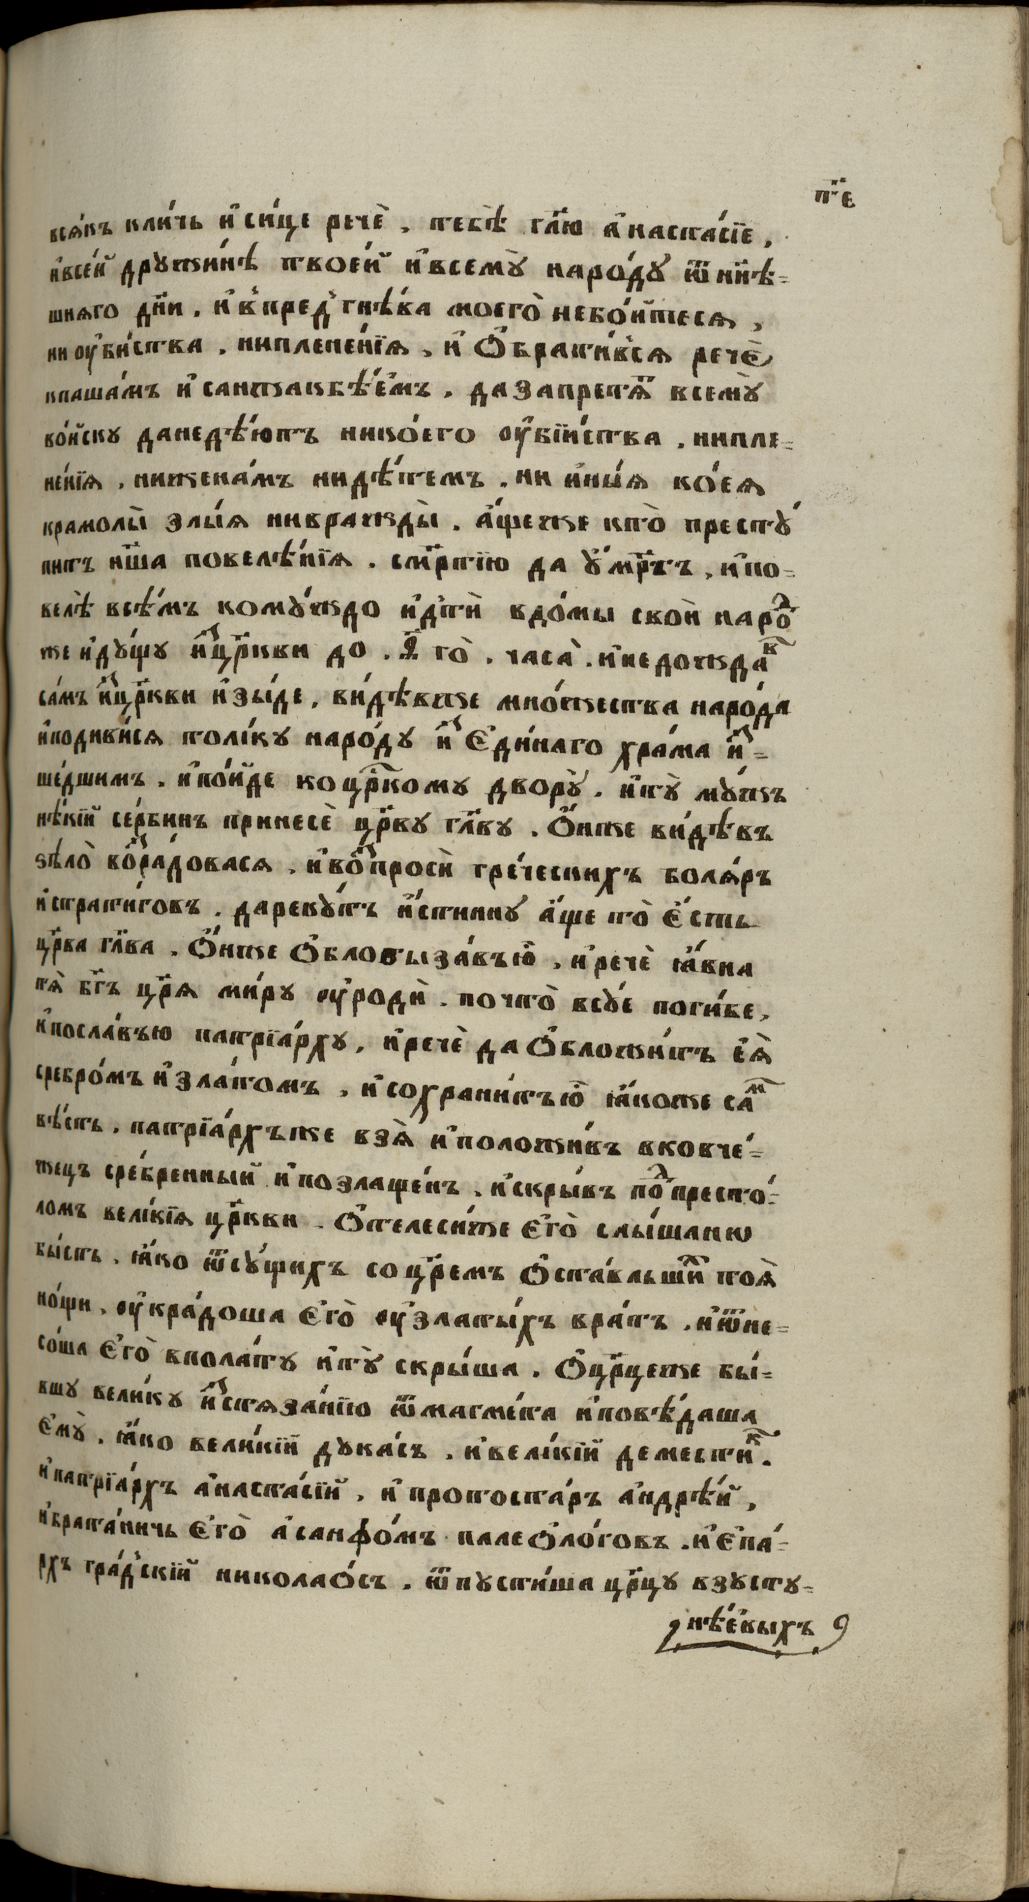 п҃е
вся́къ кли́чь и҆ си́це речѐ , тебѣ̀ гл҃ю а҆наста́сїе ,
и҆всей дружи́нѣ твое́й и҆всемꙋ̀ наро́дꙋ ѿ ни҃ѣ-
шняго дн҃и . и҆ впред гнѣ́ва моего̀ небо́йтеся ,
ни оу҆би́ства . ниплене́нїя , и҆ Ѻ҆брати́вся речѐ
кпаша́мъ и҆ санжакбѣ́емъ . да запретя́т всемꙋ̀
во́йскꙋ данедѣ́ютъ нико́его оу҆бїи́ства . нипле-
не́нїя , нижена́мъ нидѣ́темъ . ни и҆ны́я ко́ея
крамолы̀ злы́я нивражды̀ . а҆́щеже кто̀ престꙋ́
питъ н҃ша повелѣ́нїя . см҃ртїю да ᲂу҆мр҃тъ , и҆по-
велѣ̀ всѣ́мъ комꙋ́ждо и҆дтѝ вдо́мы своѝ наро́д
же и҆дꙋ́щꙋ и҆з̾ цр҃кви до . ѳ҃ го̀ . часа̀ . и҆недожда́в
са́мъ и҆з̾ цр҃кви и҆зы́де , ви́дѣвже мно́жества наро́да
и҆подиви́ся толи́кꙋ наро́дꙋ и҆з̾ Е҆ди́наго хра́ма и҆з̾-
ше́дшимъ . и҆по́йде ко цр҃комꙋ дворꙋ̀ . и҆тꙋ̀ мꙋ́жъ
нѣ́кїй се́рбинъ принесѐ цр҃вꙋ гл҃вꙋ . Ѻ҆́нже ви́дѣвъ
ѕѣло̀ воз̾ра́довася , и҆во́з̾просѝ гре́ческихъ боля́ръ
и҆страти́говъ . дарекꙋ́тъ и҆́стиннꙋ а҆́ще то̀ Е҆́сть
цр҃ва гл҃ва . Ѻ҆́нже Ѻ҆блобыза́въю҆̀ , и҆речѐ ꙗ҆́вна
тя̀ бг҃ъ цр҃я ми́рꙋ оу҆родѝ . почто̀ всꙋ́е поги́бе ,
и҆посла́въю патрїа́рхꙋ , и҆речѐ да Ѻ҆бложи́тъ е҆я̀
сребро́мъ и҆зла́томъ , и҆сохрани́тъю҆̀ ꙗ҆́коже са́м
вѣ́сть . патрїа́рхъже взя̀ и҆положи́въ вковче́-
жецъ сре́бренный и҆позлаще́нъ . и҆скры́въ по́д престо́-
ломъ вели́кїя цр҃кви . Ѻ҆телеси́же Е҆го̀ слы́шанно
бы́сть . ꙗ҆́ко ѿсꙋ́щихъ со цр҃емъ Ѻ҆ста́вльши́й тоя̀
но́щи , оу҆кра́доша Е҆го̀ оу҆златы́хъ вра́тъ . и҆ѿне-
со́ша Е҆го̀ вполатꙋ и҆тꙋ̀ скры́ша . Ѻ҆цр҃цеже бы́-
вшꙋ вели́кꙋ и҆з̾стяза́нїю ѿмагме́та и҆повѣ́даша
Е҆мꙋ̀ . ꙗ҆́ко вели́кїй дꙋка́съ . и҆вели́кїй демести́к .
и҆патрїа́рхъ а҆наста́сїй , и҆ протоста́ръ а҆ндрѣ́й ,
и҆брата́ничь Е҆го̀ а҆санфо́мъ палеѺ҆ло́говъ . и҆ Е҆па́-
рхъ гра́дскїй николаѺ́съ . ѿпꙋсти́ша цр҃цꙋ взꙋстꙋ-
нѣ́евыхъ